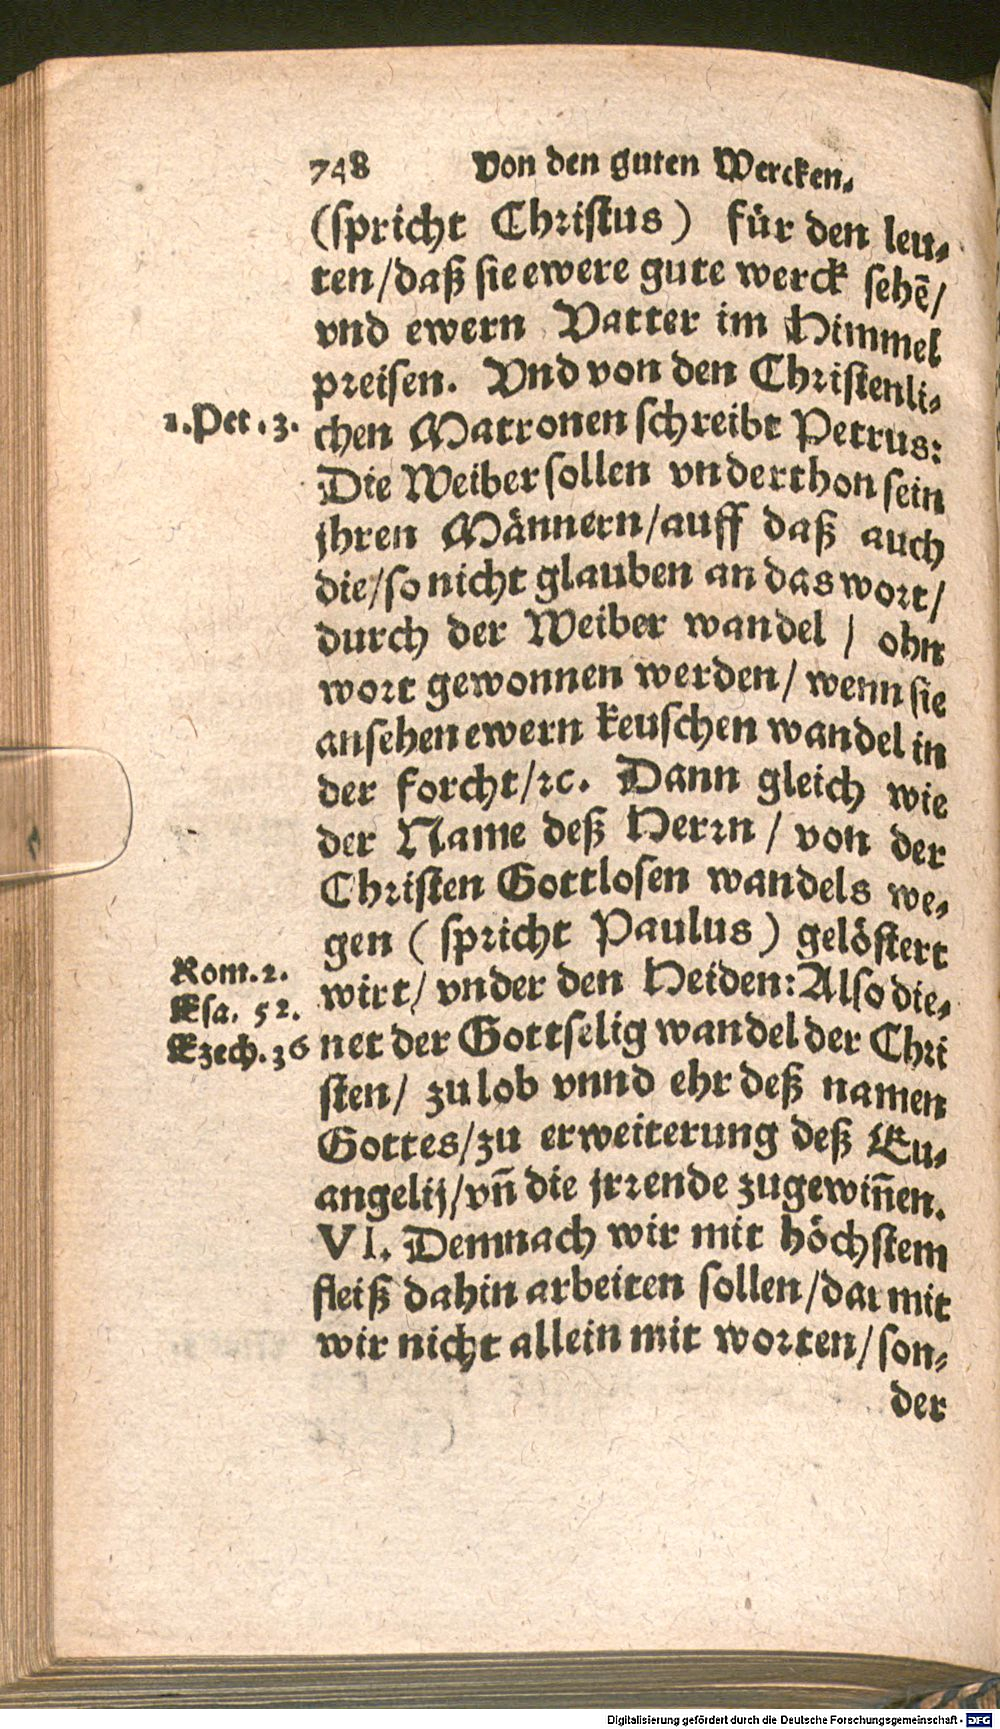 748 Von den guten Wercken.
(spricht Christus) für den leu-
ten/daß sie ewere gute werck sehẽ/
vnd ewern Vatter im Himmel
preisen. Vnd von den Christenli-
1.Pet.3. chen Matronen schreibt Petrus:
Die Weiber sollen vnderthon sein
jhren Männern/auff daß auch
die/so nicht glauben an das wort/
durch der Weiber wandel / ohn
wort gewonnen werden/ wenn sie
ansehen ewern keuschen wandel in
der forcht/ꝛc. Dann gleich wie
der Name deß Herrn / von der
Christen Gottlosen wandels we-
gen ( spricht Paulus) gelöstert
Rom.2. wirt/ vnder den Heiden: Also die-
Esa. 52. net der Gottselig wandel der Chri
Ezech.36 sten/ zu lob vnnd ehr deß namen
Gottes/zu erweiterung deß Eu-
angelij/vñ die jrrende zugewiñen.
VI. Demnach wir mit höchstem
fleiß dahin arbeiten sollen/dar mit
wir nicht allein mit worten/son-
der
Digitalisierung gefördert durch die Deutsche Forschungsgemeinschaft - DFG